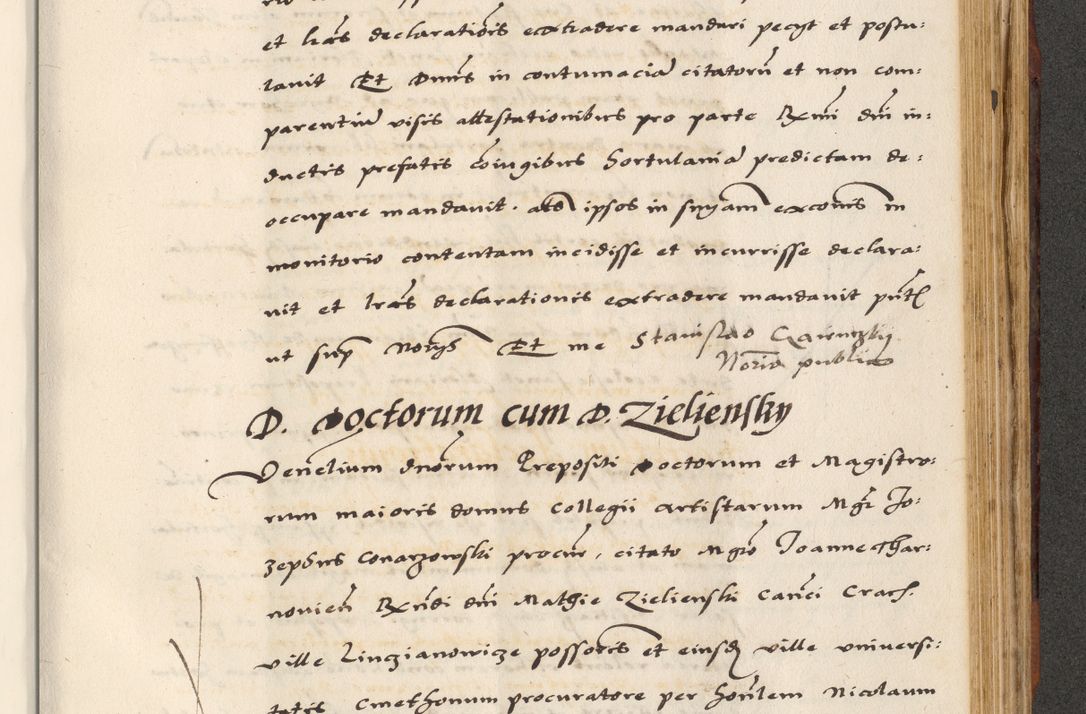 et lr̃as declarationis extradere mandari pecyt et postu:
lauit Et Dnus in contumaciã citatorũ et non com:
parentiũ visis attestationibus pro parte Rx̃mi dñi in:
ductis prefatis coiugibus hortulaniã predictam de:
occupare mandauit. ipsos in excõis in
monitorio contentam incidisse et incurrisse declara:
uit et lr̃as declarationis extradere mandauit pñt
ut sup̃ Et me Stanislao
Norio publico
D. Doctorum cum D. Zieliensky
Venelium dnorum Prepositi Doctorum et Magistro:
rum maioris domus Collegii artistarum Mgr̃ Jo:
zephus Conarzowski procur̃, citato Mgro Joanne Thar:
nouien̄ Rx̃ndi dñi Mathie Zielienski Canci Crac.
ville possoris et eiusd ville vniuersi:
tatis Cmethonum procuratore per honlem Nicolaum